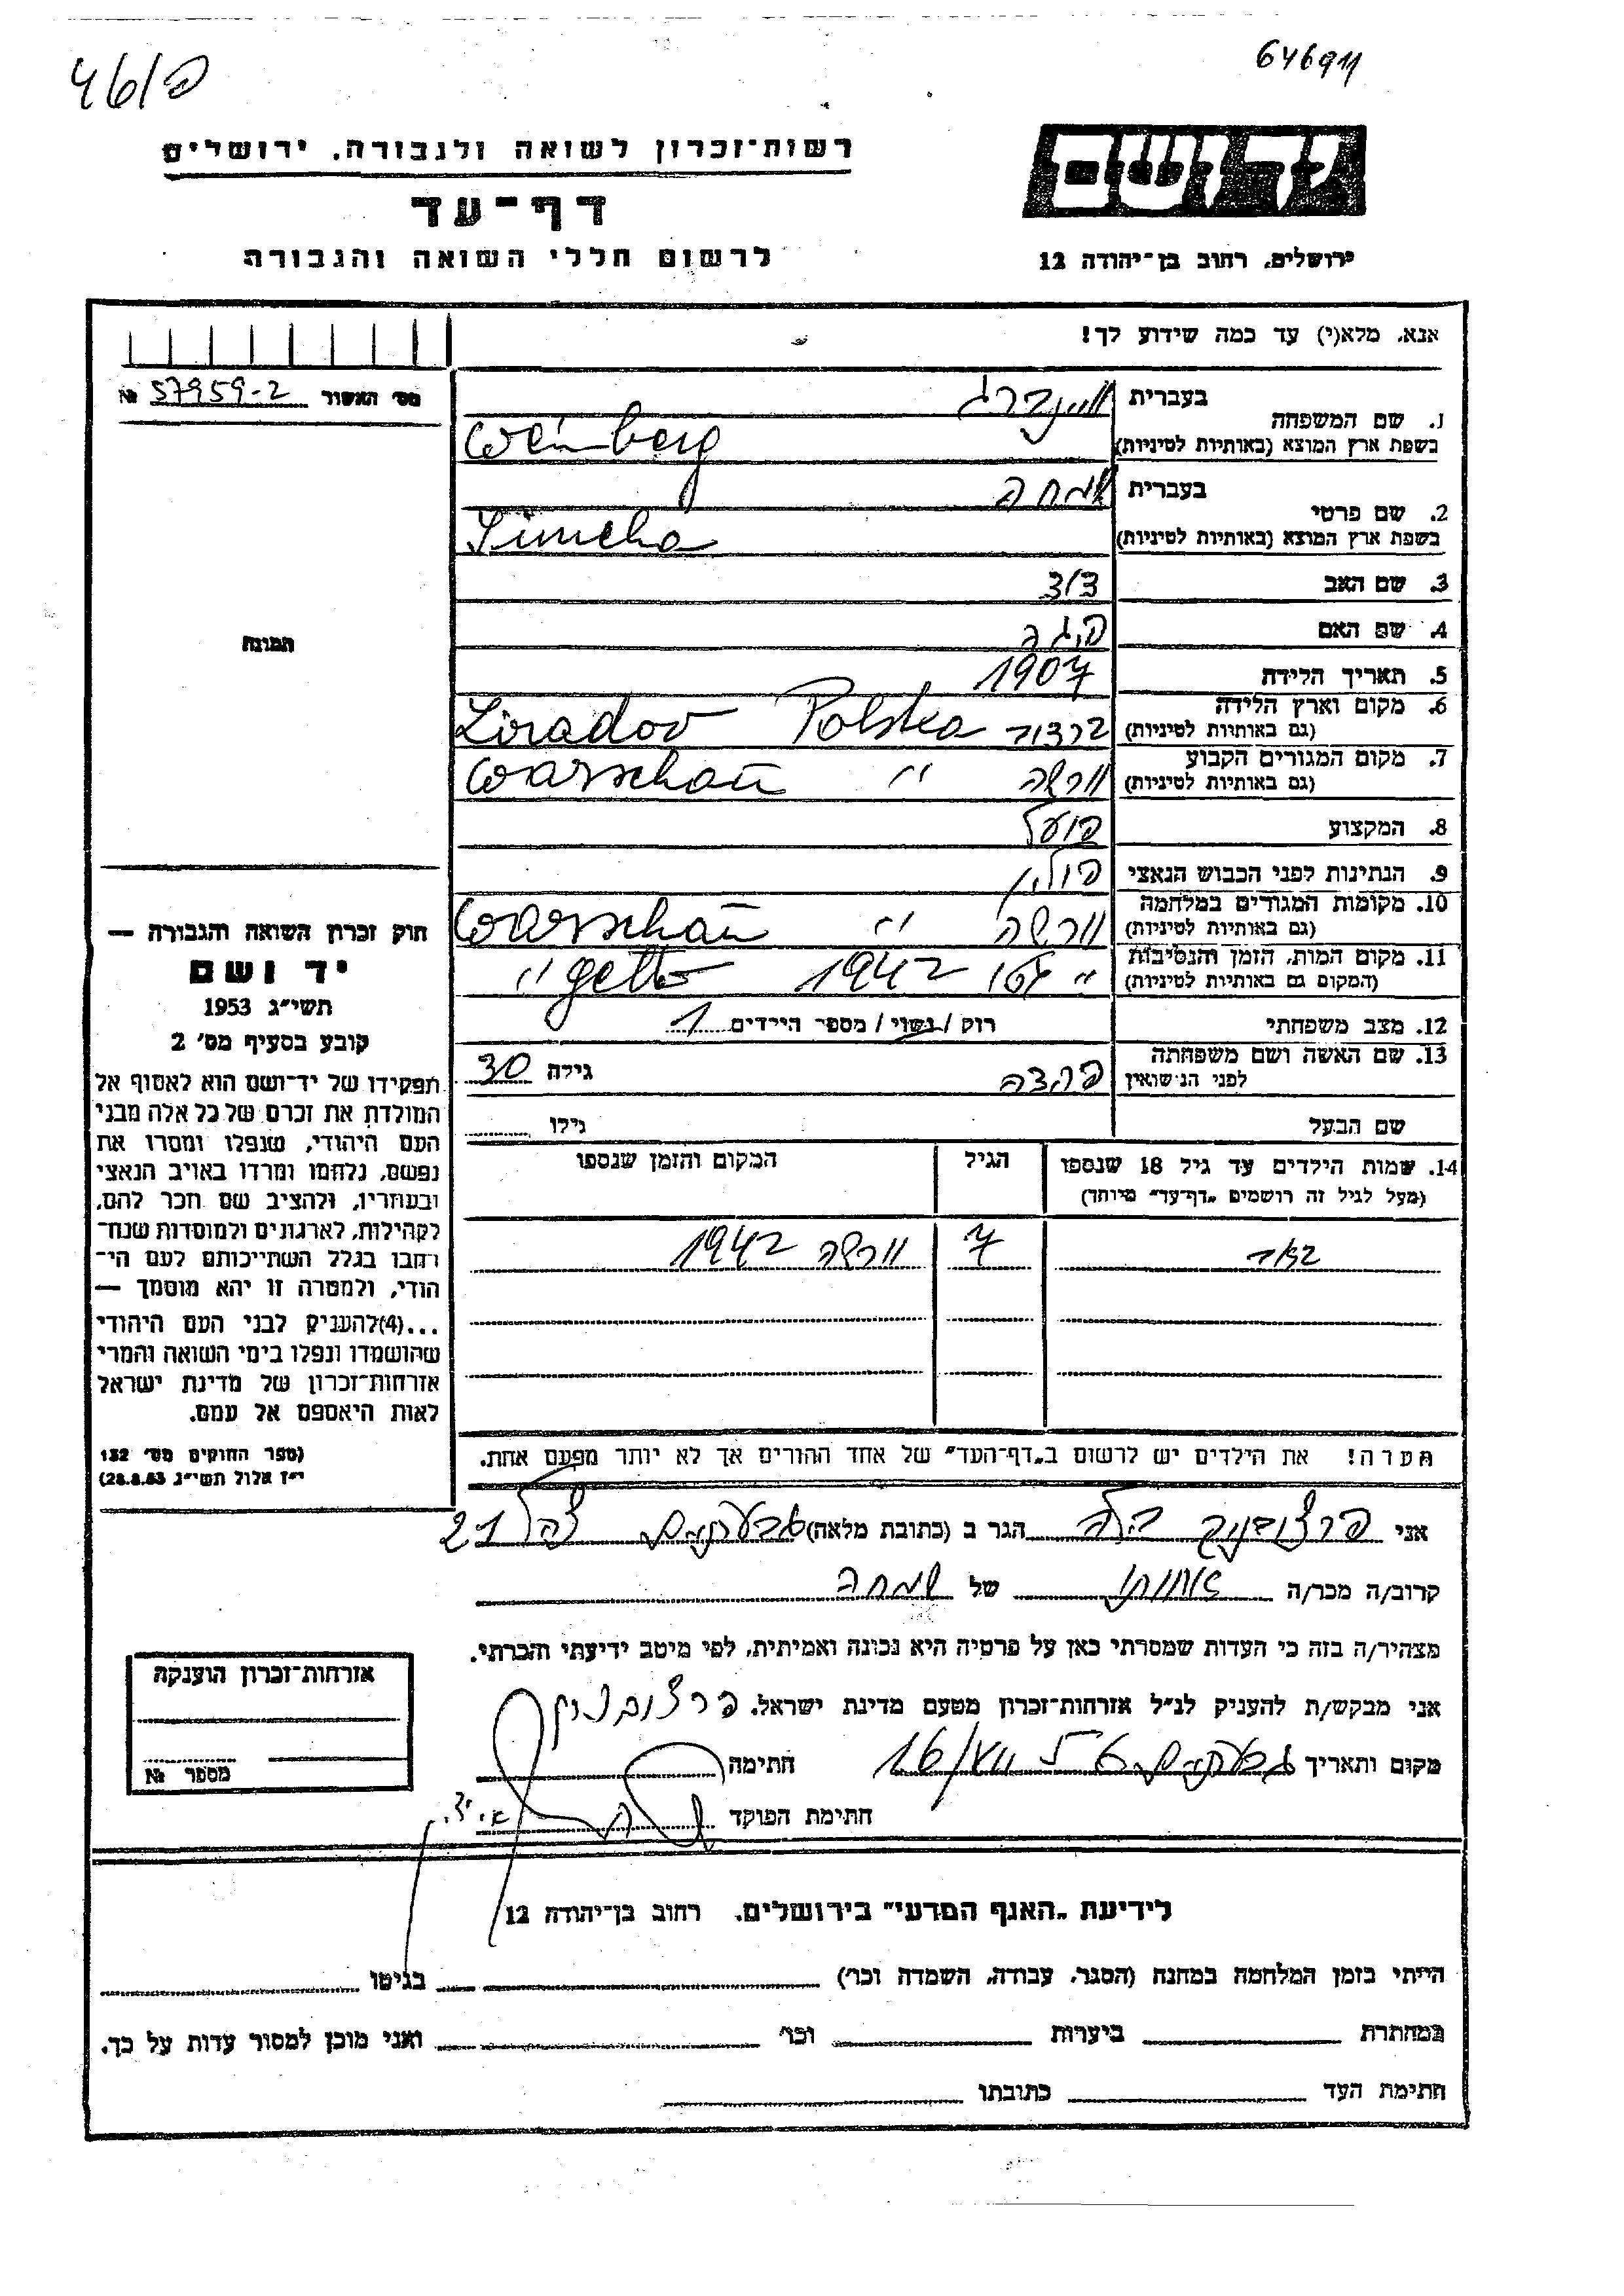 פ/461
646911
רשות־זכרון לשואה ולגבורה, ירושלים
דף־עד
לרשום חללי השואה והגבורה
ידושם
ירושלים, רחוב בן־יהודה 12
אנא, מלא(י) עד כמה שידוע לך!
מס' האשור 57959-2 №
1. שם המשפחה
בעברית ווינברג
בשפת ארץ המוצא (באותיות לטיניות) Weinberg
2. שם פרטי
בעברית שמחה
בשפת ארץ המוצא (באותיות לטיניות) Simcha
3. שם האב
4. שם האם
5. תאריך הלידה 1907
6. מקום וארץ הלידה
(גם באותיות לטיניות) Polska Ziradov
7. מקום המגורים הקבוע
(גם באותיות לטיניות) וורשה " Warschau
8. המקצוע פועל
9. הנתינות לפני הכבוש הנאצי פולין
10. מקומות המגורים במלחמה
(גם באותיות לטיניות) וורשה " Warschau
11. מקום המות, הזמן והנסיבות
(המקום גם באותיות לטיניות) " גטו 1942 getto "
12. מצב משפחתי רווק / נשוי / מספר הילדים 1
13. שם האשה ושם משפחתה
לפני הנישואין גילה 30
שם הבעל גילו
14. שמות הילדים עד גיל 18 שנספו הגיל המקום והזמן שנספו
(מעל לגיל זה רושמים "דף־עד" מיוחד)
7 וורשה 1942
הערה! את הילדים יש לרשום ב"דף־העד" של אחד ההורים אך לא יותר מפעם אחת.
תמונה
חוק זכרון השואה והגבורה —
יד ושם
תשי"ג 1953
קובע בסעיף מס' 2
תפקידו של יד־ושם הוא לאסוף אל
המולדת את זכרם של כל אלה מבני
העם היהודי, שנפלו ומסרו את
נפשם, נלחמו ומרדו באויב הנאצי
ובעוזריו, ולהציב שם וזכר להם,
לקהילות, לארגונים ולמוסדות שנח־
רבו בגלל השתייכותם לעם הי־
הודי, ולמטרה זו יהא מוסמך —
...(4)להעניק לבני העם היהודי
שהושמדו ונפלו בימי השואה והמרי
אזרחות־זכרון של מדינת ישראל
לאות היאספם אל עמם.
(ספר החוקים מס' 132
י"ז אלול תשי"ג 28.8.53)
אני הגר ב (כתובת מלאה) גבעתיים 21
קרוב/ה מכר/ה של שמחה
מצהיר/ה בזה כי העדות שמסרתי כאן על פרטיה היא נכונה ואמיתית, לפי מיטב ידיעתי והכרתי.
אני מבקש/ת להעניק לנ"ל אזרחות־זכרון מטעם מדינת ישראל.
מקום ותאריך גבעתיים חתימה
חתימת הפוקד
אזרחות־זכרון הוענקה
מספר №
לידיעת "האגף המדעי" בירושלים, רחוב בן־יהודה 12
הייתי בזמן המלחמה במחנה (הסגר, עבודה, השמדה וכו') בגיטו
במחתרת ביערות וכו' ואני מוכן למסור עדות על כך.
חתימת העד כתובתו